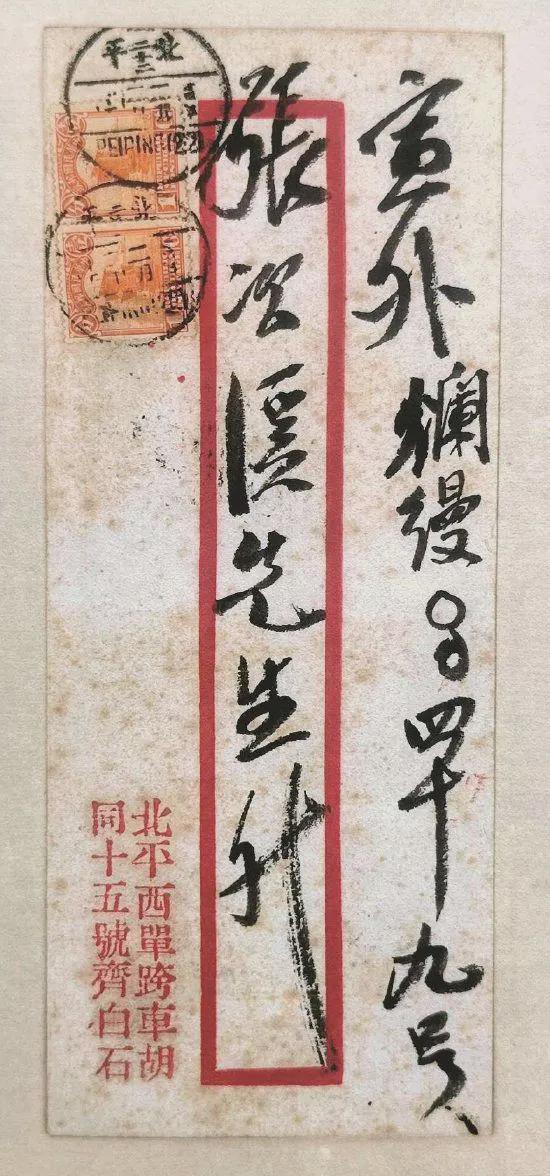 宣外爛縵胡同四十九号
張次溪先生升
北平西單跨車胡
同十五號齊白石
北平
PEIPING (22)